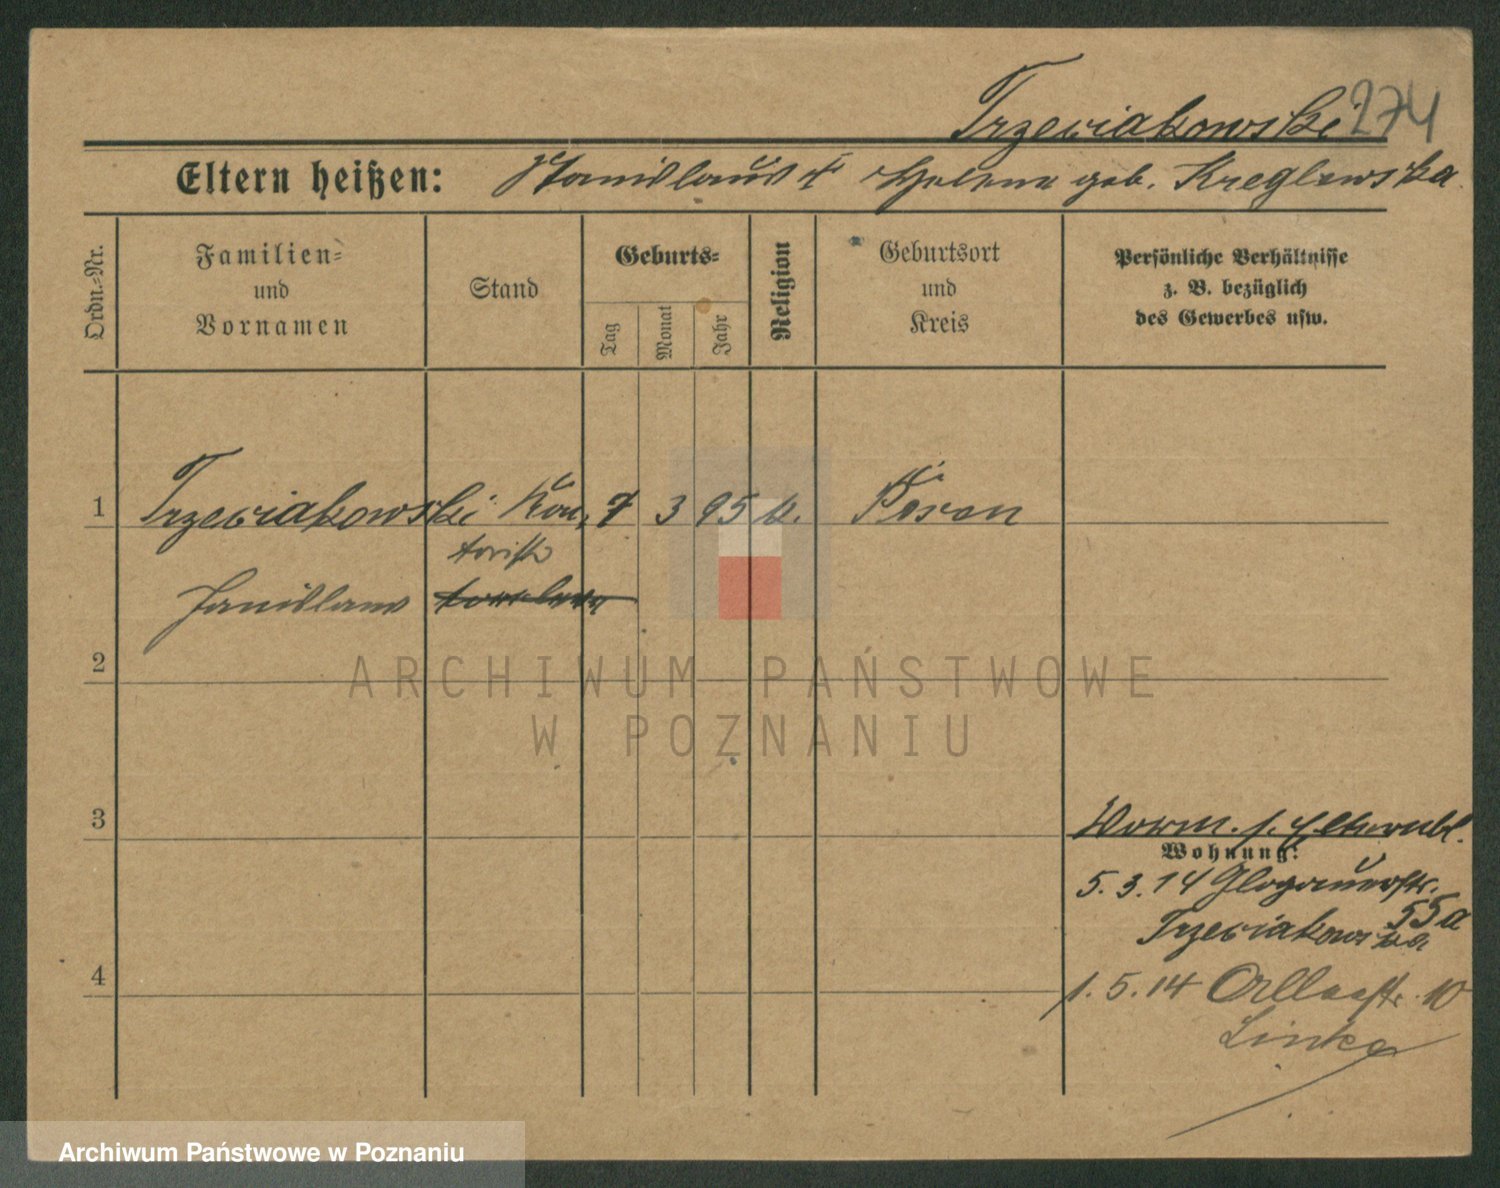 Trzeciakowski 274
Eltern heißen: Stanislaus & Helene geb. Kreglewska.
Ordn.-Nr.
Familien-
und
Vornamen
Stand
Geburts-
Tag
Monat
Jahr
Religion
Geburtsort
und
Kreis
Persönliche Verhältnisse
z. B. bezüglich
des Gewerbes usw.
1 Trzeciakowski Kon- 7 3 95 k. Posen
torist
Stanislaus
2
3
4
Worm. s. Elternbl.
Wohnung:
5. 3. 14 Glogauerstr.
55a
Trzeciakowska
1. 5. 14 10
Linke
ARCHIWUM PAŃSTWOWE
W POZNANIU
Archiwum Państwowe w Poznaniu